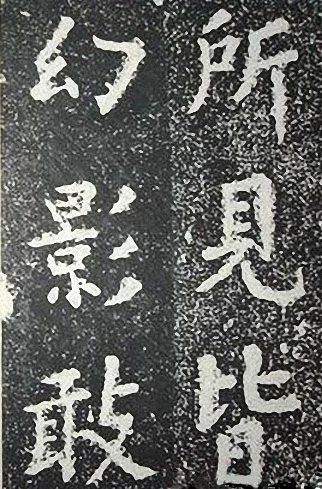 所見皆
幻影敢